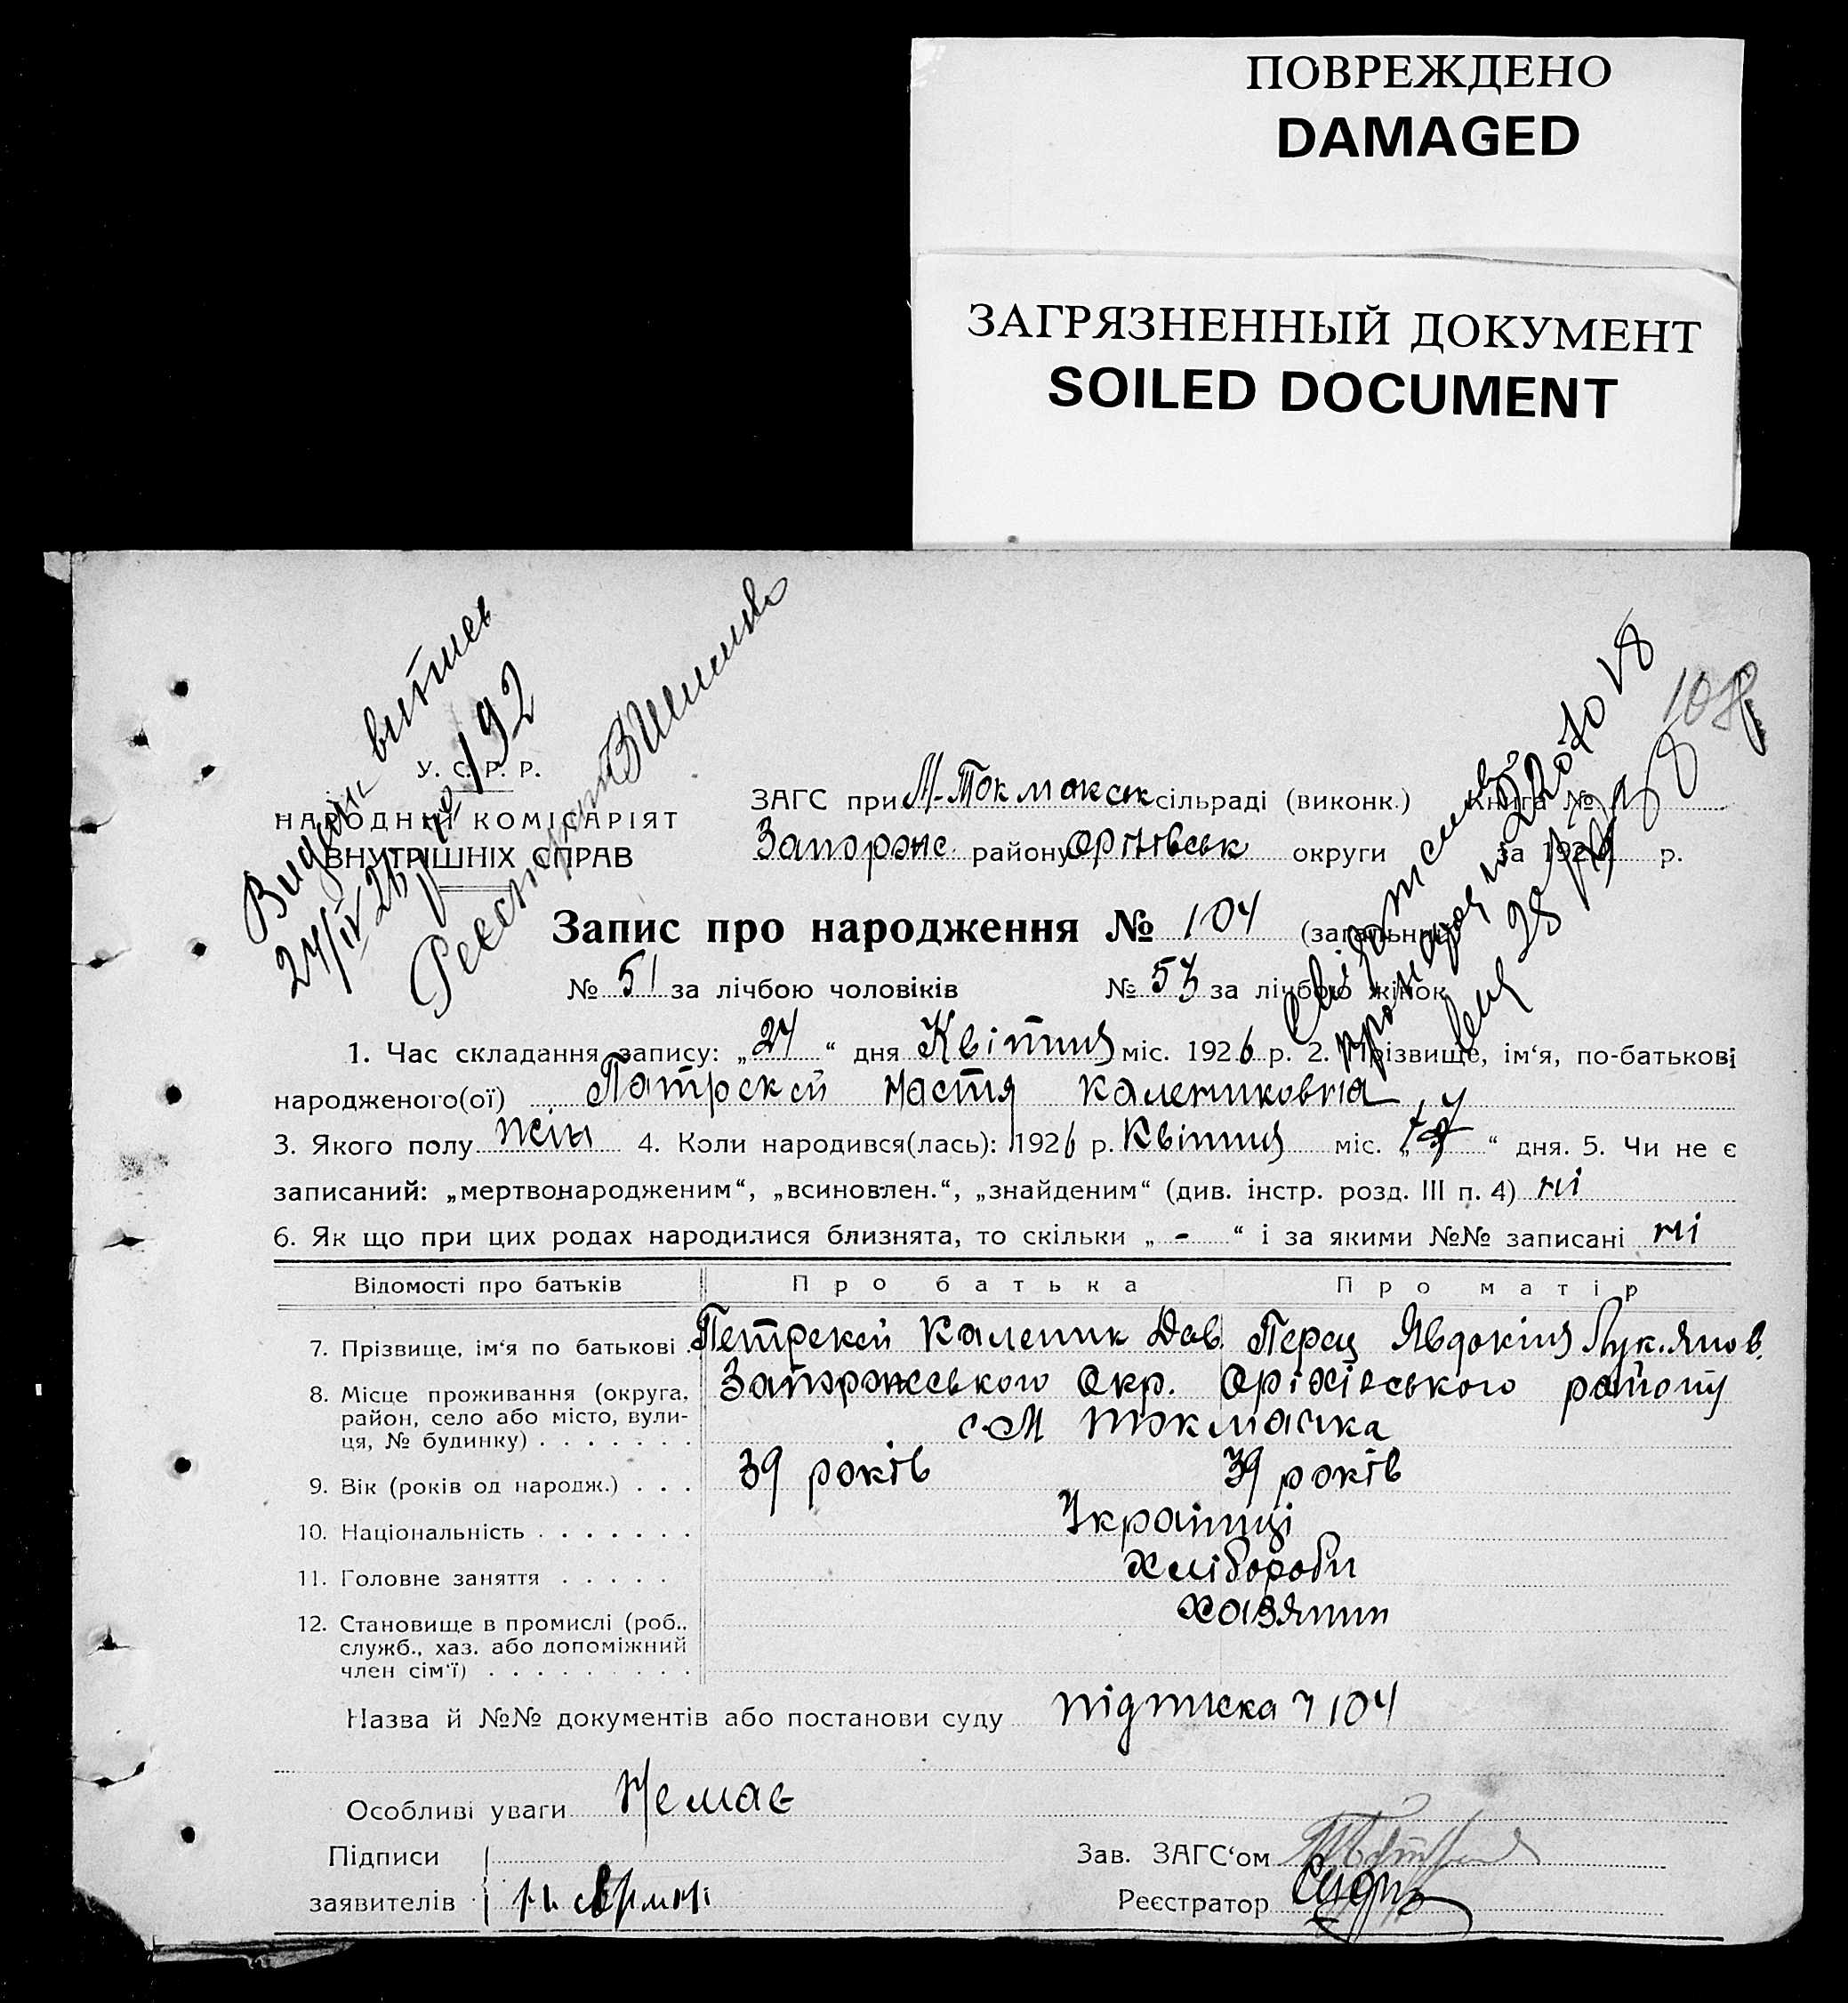 ПОВРЕЖДЕНО
DAMAGED
ЗАГРЯЗНЕННЫЙ ДОКУМЕНТ
SOILED DOCUMENT
Видан витись
24/IV 26 р. № 192
Реєстратор
108
У. С. Р. Р.
НАРОДНІЙ КОМІСАРІЯТ
ВНУТРІШНІХ СПРАВ
ЗАГС при М-Токмакськ сільраді (виконк.) Книга №
Запорожс. району Оріхівськ округи за 1926 р.
Запис про народження № 104 (загальний)
№ 51 за лічбою чоловіків № 53 за лічбою жінок
1. Час складання запису: „24“ дня Квітня міс. 1926 р. 2. Прізвище, ім‘я, по-батькові
народженого(ої) Патрекей Настя Калениковна
3. Якого полу жін 4. Коли народився(лась): 1926 р. Квітня міс. „ “ дня. 5. Чи не є
записаний: „мертвонародженим“, „всиновлен.“, „знайденим“ (див. інстр. розд. III п. 4) ні
6. Як що при цих родах народилися близнята, то скільки „ - “ і за якими №№ записані ні
Відомості про батьків Про батька Про матір
7. Прізвище, ім‘я по батькові . Петрекей Каленик Дав. Перец Явдокія Лук.янов.
8. Місце проживання (округа, Запорожського Окр. Оріхівського району
район, село або місто, вули-
ця, № будинку) . . . . . . . с. М Токмачка
9. Вік (років од народж.) . . . 39 років 39 років
10. Національність . . . . . . . Українці
11. Головне заняття . . . . . Хлібороби
12. Становище в промислі (роб., Хазяїни
служб., хаз. або допоміжний
член сім‘ї) . . . . . . . . .
Назва й №№ документів або постанови суду підписка № 104
Особливі уваги Немає
Підписи Зав. ЗАГС‘ом
заявителів Реєстратор